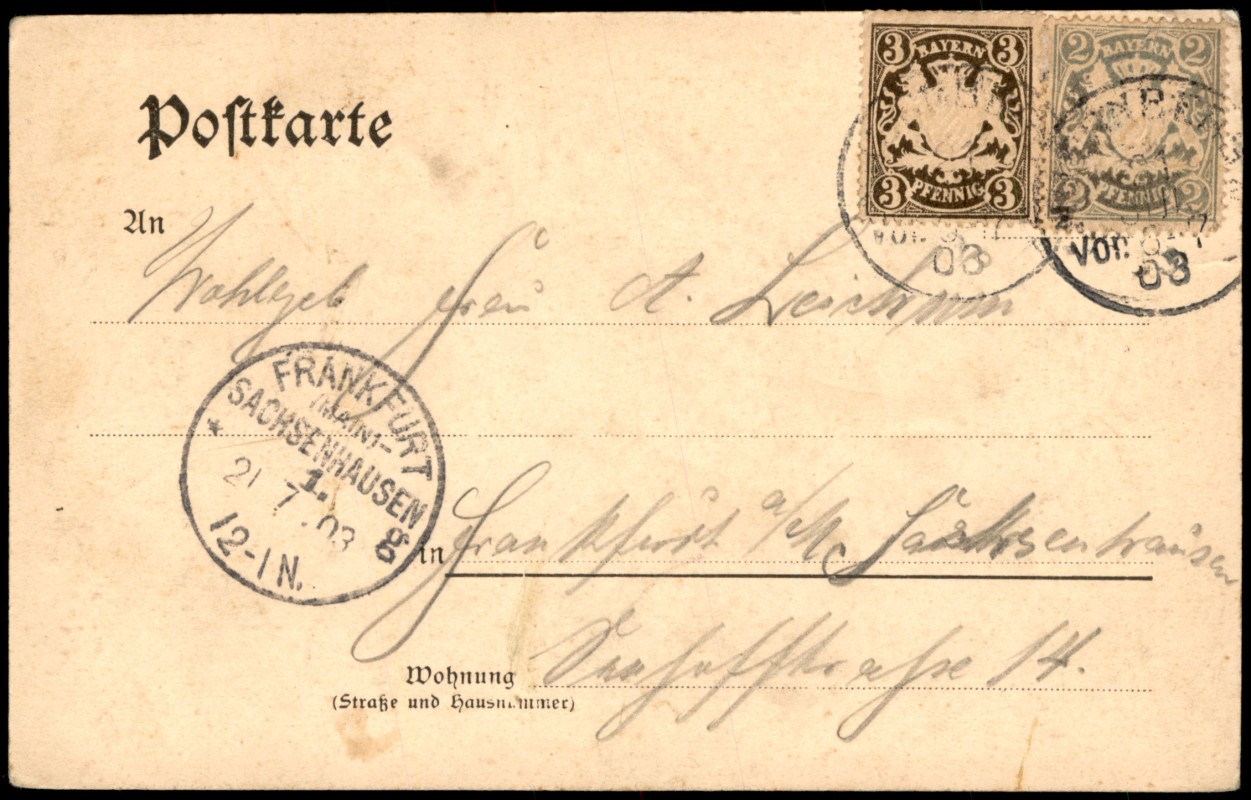 Postkarte
3 BAYERN 3
3 PFENNIG 3
2 BAYERN 2
2 PFENNIG 2
Vor.
03
Vor. 8-
03
An Wohlgeb Frau A.
FRANKFURT
(MAIN)-
SACHSENHAUSEN
1.
21 7.03
12-1 N.
g
in Frankfurt a/M Sachsenhausen
Wohnung
(Straße und Hausnummer)
14.